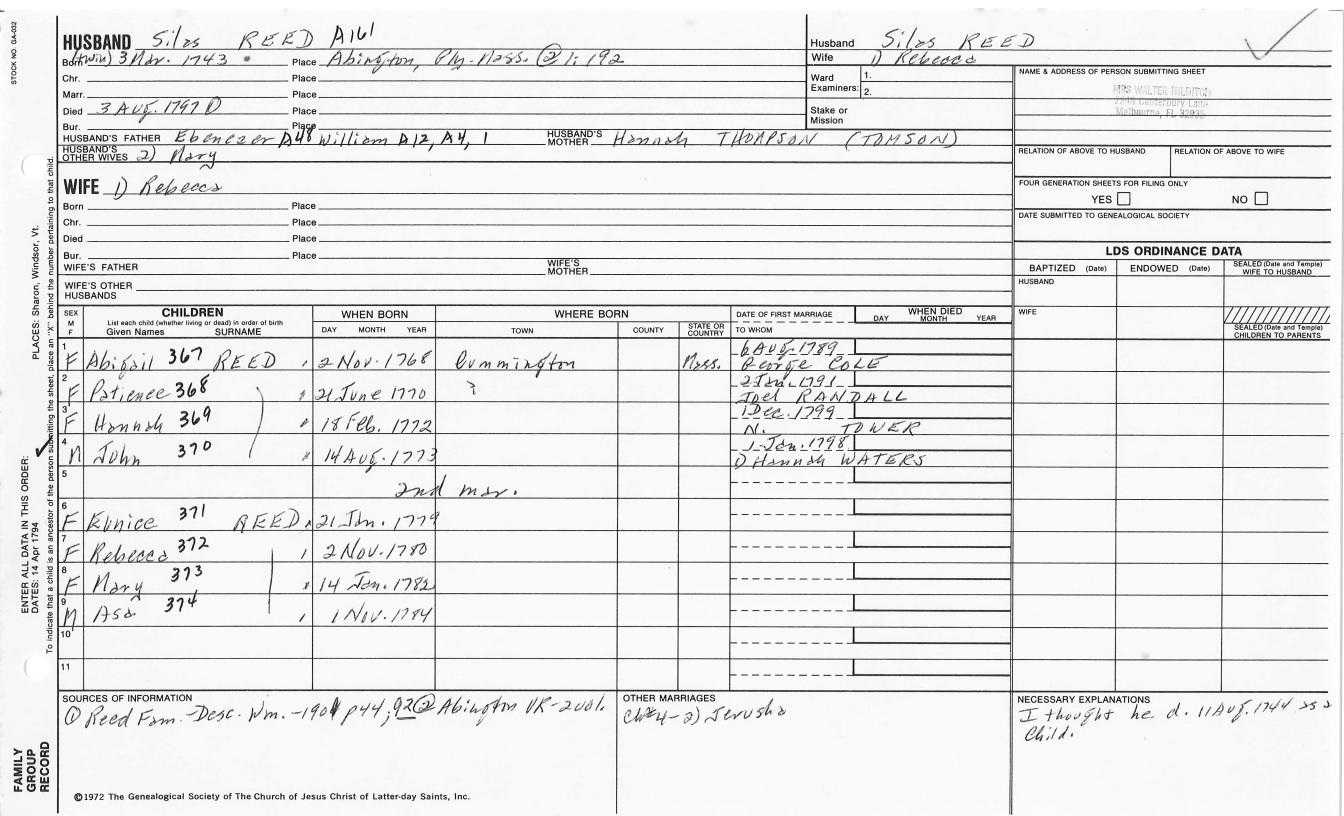 STOCK NO. GA-032
HUSBAND Silas REED A161
Born (twin) 3 Mar. 1743 Place Abington, Ply. Mass. ② 1:192
Chr. Place
Marr. Place
Died 3 Aug. 1797 Place
Bur. Place
HUSBAND'S FATHER Ebenezer A48 William A12, A4, 1 HUSBAND'S MOTHER Hannah THOMPSON (TOMSON)
HUSBAND'S OTHER WIVES 2) Mary
WIFE 1) Rebecca
Born Place
Chr. Place
Died Place
Bur. Place
WIFE'S FATHER WIFE'S MOTHER
WIFE'S OTHER HUSBANDS
Husband Silas REED
Wife 1) Rebecca
Ward Examiners: 1.
2.
Stake or Mission
NAME & ADDRESS OF PERSON SUBMITTING SHEET
MRS WALTER
Canterbury Lane
Melbourne, FL 32935
RELATION OF ABOVE TO HUSBAND RELATION OF ABOVE TO WIFE
FOUR GENERATION SHEETS FOR FILING ONLY
YES NO
DATE SUBMITTED TO GENEALOGICAL SOCIETY
LDS ORDINANCE DATA
BAPTIZED (Date) ENDOWED (Date) SEALED (Date and Temple) WIFE TO HUSBAND
HUSBAND
WIFE
SEALED (Date and Temple) CHILDREN TO PARENTS
SEX M F CHILDREN List each child (whether living or dead) in order of birth Given Names SURNAME
WHEN BORN DAY MONTH YEAR
WHERE BORN TOWN COUNTY STATE OR COUNTRY
DATE OF FIRST MARRIAGE TO WHOM
WHEN DIED DAY MONTH YEAR
1 F Abigail 367 REED 2 Nov. 1768 Cummington Mass. 6 Aug. 1789 George COLE
2 F Patience 368 21 June 1770 ? 2 Jan. 1791 Joel RANDALL
3 F Hannah 369 18 Feb. 1772 1 Dec. 1799 N. TOWER
4 M John 370 14 Aug. 1773 1 Jan. 1798 1) Hannah WATERS
5 2nd mar.
6 F Eunice 371 REED 21 Jan. 1779
7 F Rebecca 372 2 Nov. 1780
8 F Mary 373 14 Jan. 1782
9 M Asa 374 1 Nov. 1784
10
11
SOURCES OF INFORMATION
① Reed Fam.-Desc. Wm.-1901 p44; 92 ② Abington VR-2vol.
OTHER MARRIAGES
Ch#4-2) Jerusha
NECESSARY EXPLANATIONS
I thought he d. 11 Aug. 1744 as a
Child.
©1972 The Genealogical Society of The Church of Jesus Christ of Latter-day Saints, Inc.
FAMILY GROUP RECORD
ENTER ALL DATA IN THIS ORDER:
DATES: 14 Apr 1794
PLACES: Sharon, Windsor, Vt.
To indicate that a child is an ancestor of the person submitting the sheet, place an "X" behind the number pertaining to that child.